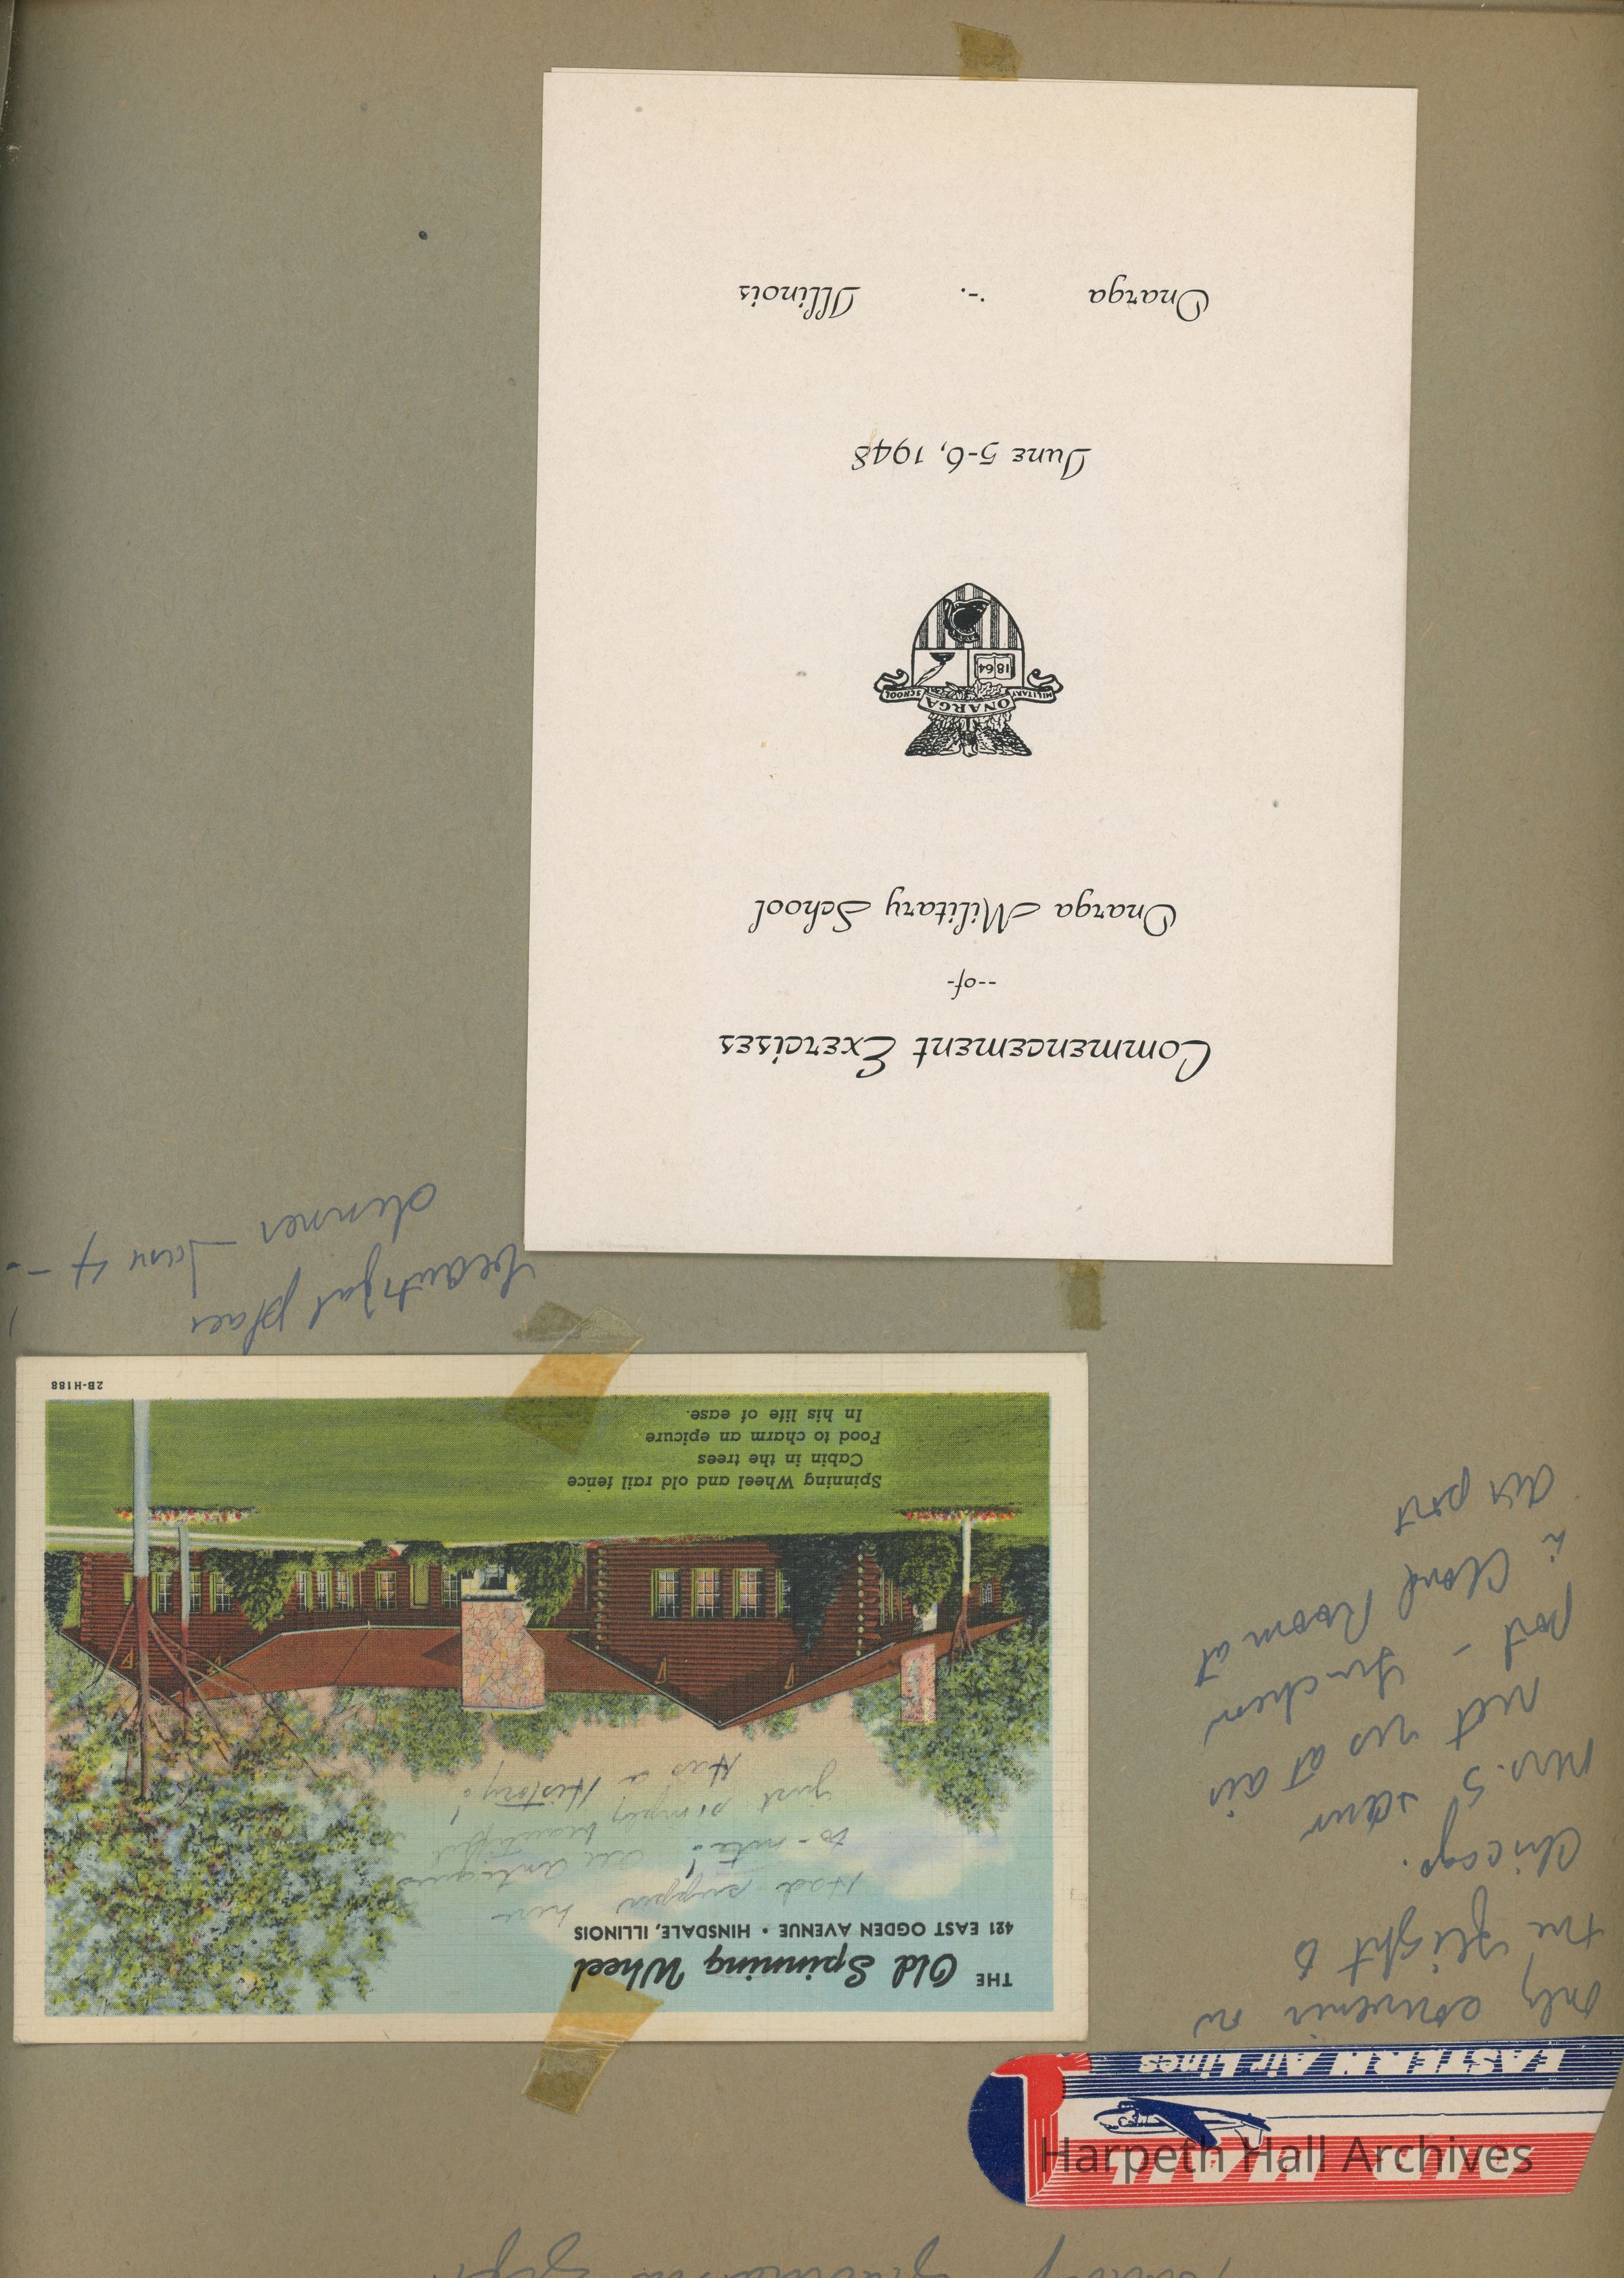 AIR MAIL
EASTERN Air Lines
only souvenir on
the flight to
Chicago.
Mrs. S saw
met us at air
port - Luncheon
in Cloud Room at
air port
THE Old Spinning Wheel
421 EAST OGDEN AVENUE • HINSDALE, ILLINOIS
Had supper here
to-nite! All antiques
just simply beautiful
Has a History!
Spinning Wheel and old rail fence
Cabin in the trees
Food to charm an epicure
In his life of ease.
2B-H188
beautiful place
dinner - June 4 -
Commencement Exercises
--of-
Onarga Military School
ONARGA
MILITARY SCHOOL
1864
June 5-6, 1948
Onarga -:- Illinois
Harpeth Hall Archives